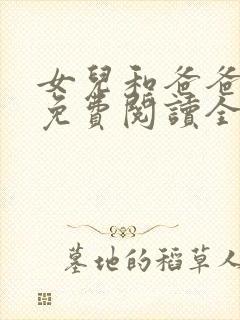 女兒和爸爸
免費閱讀全
墓地的稻草人